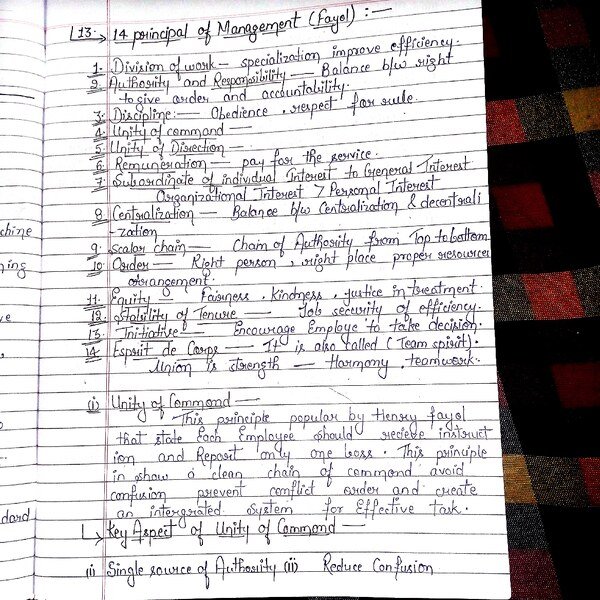 13. → 14 principal of Management (Fayol) :—
1. Division of work — specialization improve efficiency.
2. Authority and Responsibility — Balance b/w right
to give order and accountability.
3. Discipline:— Obedience, respect for rule
4. Unity of command —
5. Unity of Direction —
6. Remuneration — pay for the service.
7. Subordinate of individual Interest to General Interest
Organizational Interest > Personal Interest
8. Centralization — Balance b/w Centralization & decentrali
-zation
9. Scalar chain — Chain of Authority from Top to bottom
10. Order — Right person, right place proper resources
arrangement.
11. Equity — Fairness, kindness, justice in treatment.
12. Stability of Tenure — Job security of efficiency.
13. Initiative — Encourage Employe to take decision.
14. Esprit de Corps — It is also called (Team spirit).
Union is strength — Harmony, teamwork.
(i) Unity of Commond —
This principle popular by Henry fayol
that state Each Employee should recieve instruct
ion and Report only one boss. This principle
in show a clean chain of commond avoid
confusion prevent conflict order and create
an intergrated system for Effective task.
↳ Key Aspect of Unity of Commond —
(i) Single source of Authority (ii) Reduce Confusion
chine
ning
ve
s,
o
dard